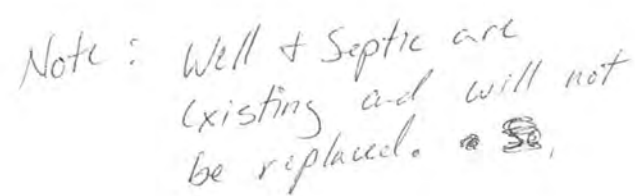 Note: Well + Septic are
existing and will not
be replaced.